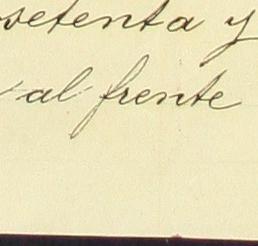 setenta y
al frente